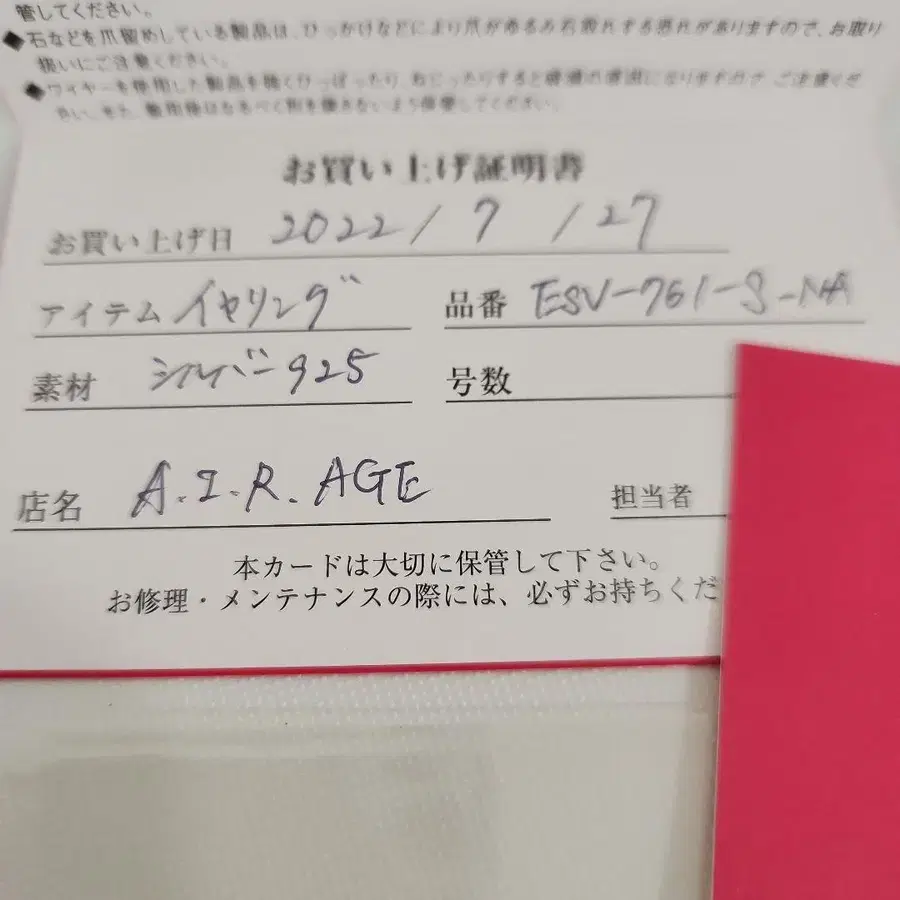 管してください。
◆石などを爪留めしている製品は、ひっかけなどにより爪がゆるみ石取れする恐れがありますので、お取り
扱いにご注意ください。
◆ワイヤーを使用した製品を強くひっぱったり、ねじったりすると破損の原因になりますので、ご注意くだ
さい。また、着用後はなるべく形を崩さないよう保管してください。
お買い上げ証明書
お買い上げ日 2022 / 7 / 27
アイテム イヤリング 品番 ESV-761-S-NA
素材 シルバー925 号数
店名 A.I.R.AGE 担当者
本カードは大切に保管して下さい。
お修理・メンテナンスの際には、必ずお持ちくだ